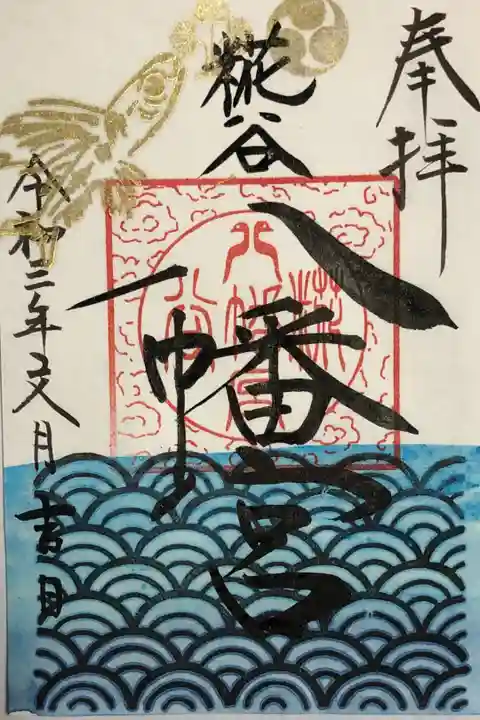 奉拝
糀谷
八幡宮
令和三年文月吉日